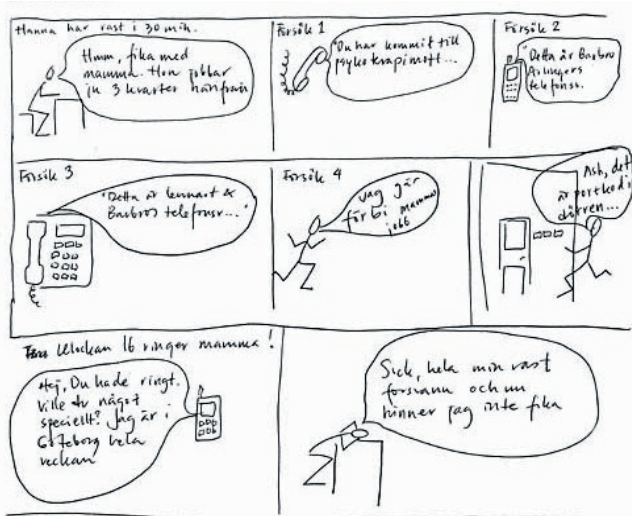 Hanna har rast i 30 min.
Hmm, fika med
mamma. Hon jobbar
ju 3 kvarter härifrån
Försök 1
"Du har kommit till
psykoterapimott...
Försök 2
"Detta är Barbro
Arlingers
telefonsv.
Försök 3
"Detta är Lennart &
Barbros telefonsv..."
Försök 4
Jag går
förbi mammas
jobb
Äsh, det
är portkod i
dörren...
Klockan 16 ringer mamma!
Hej, Du hade ringt.
Ville du något
speciellt? Jag är i
Göteborg hela
veckan
Suck, hela min rast
försvann och nu
hinner jag inte fika